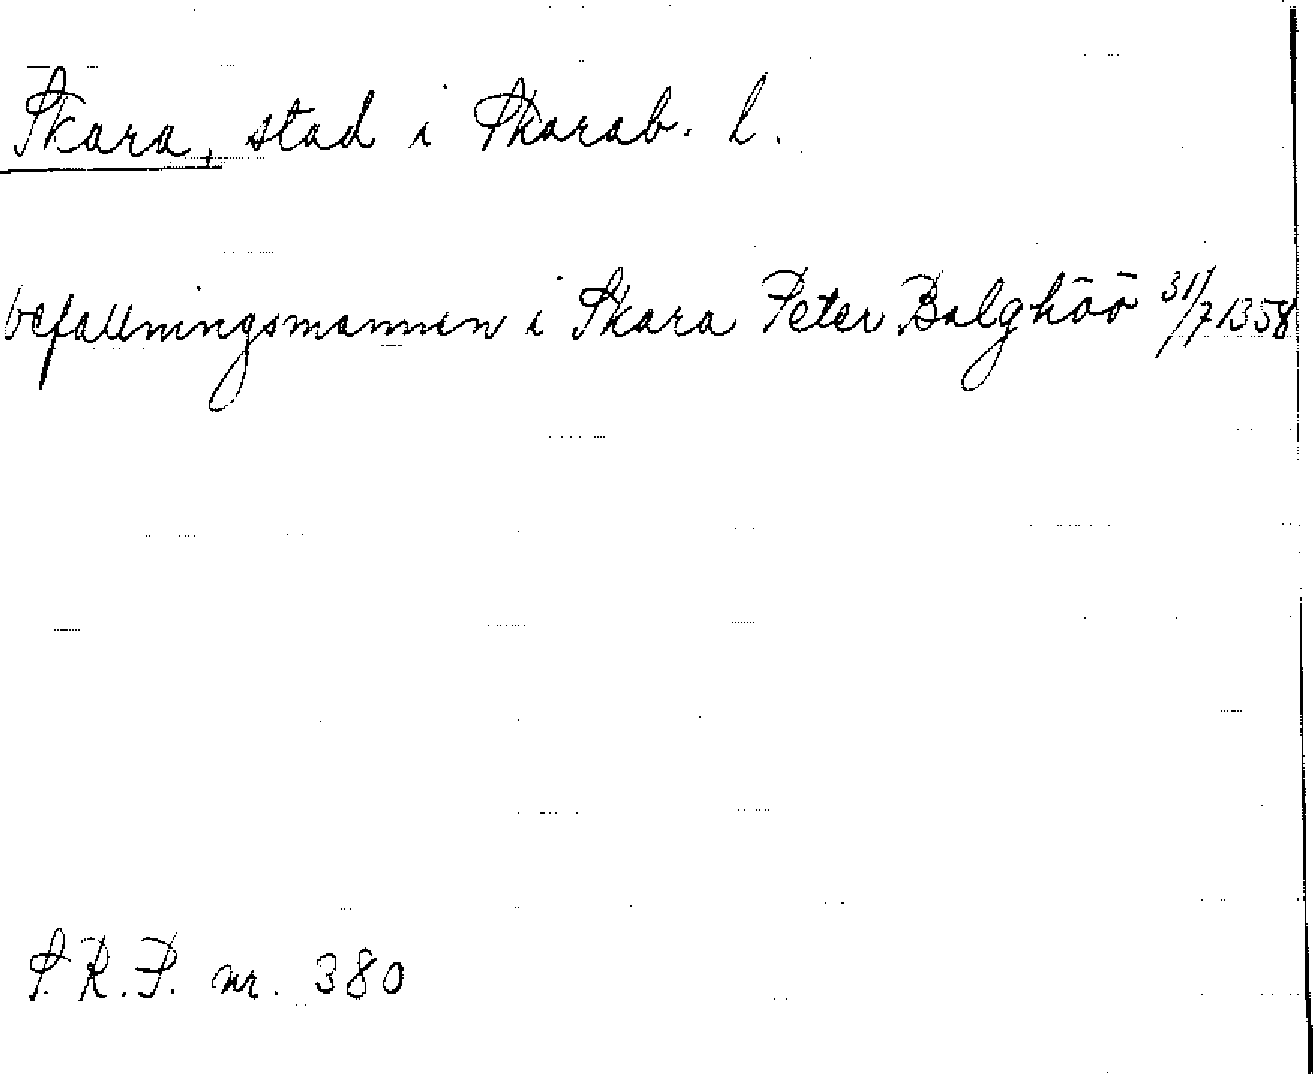 Skara, stad i Skarab. l.
befallningsmannen i Skara Peter Balghöö 31/7 1358
S.R.P. nr. 380